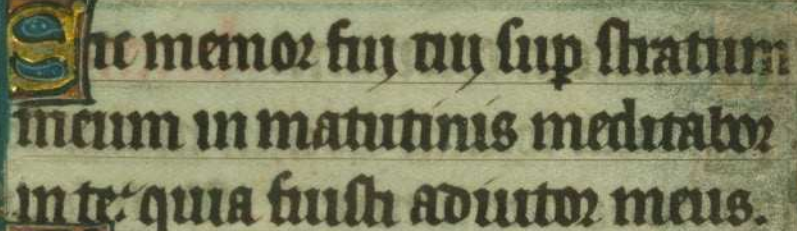 Sic memor fui tui sup stratum
meum in matutinis meditabor
in te: quia fuisti adiutor meus.